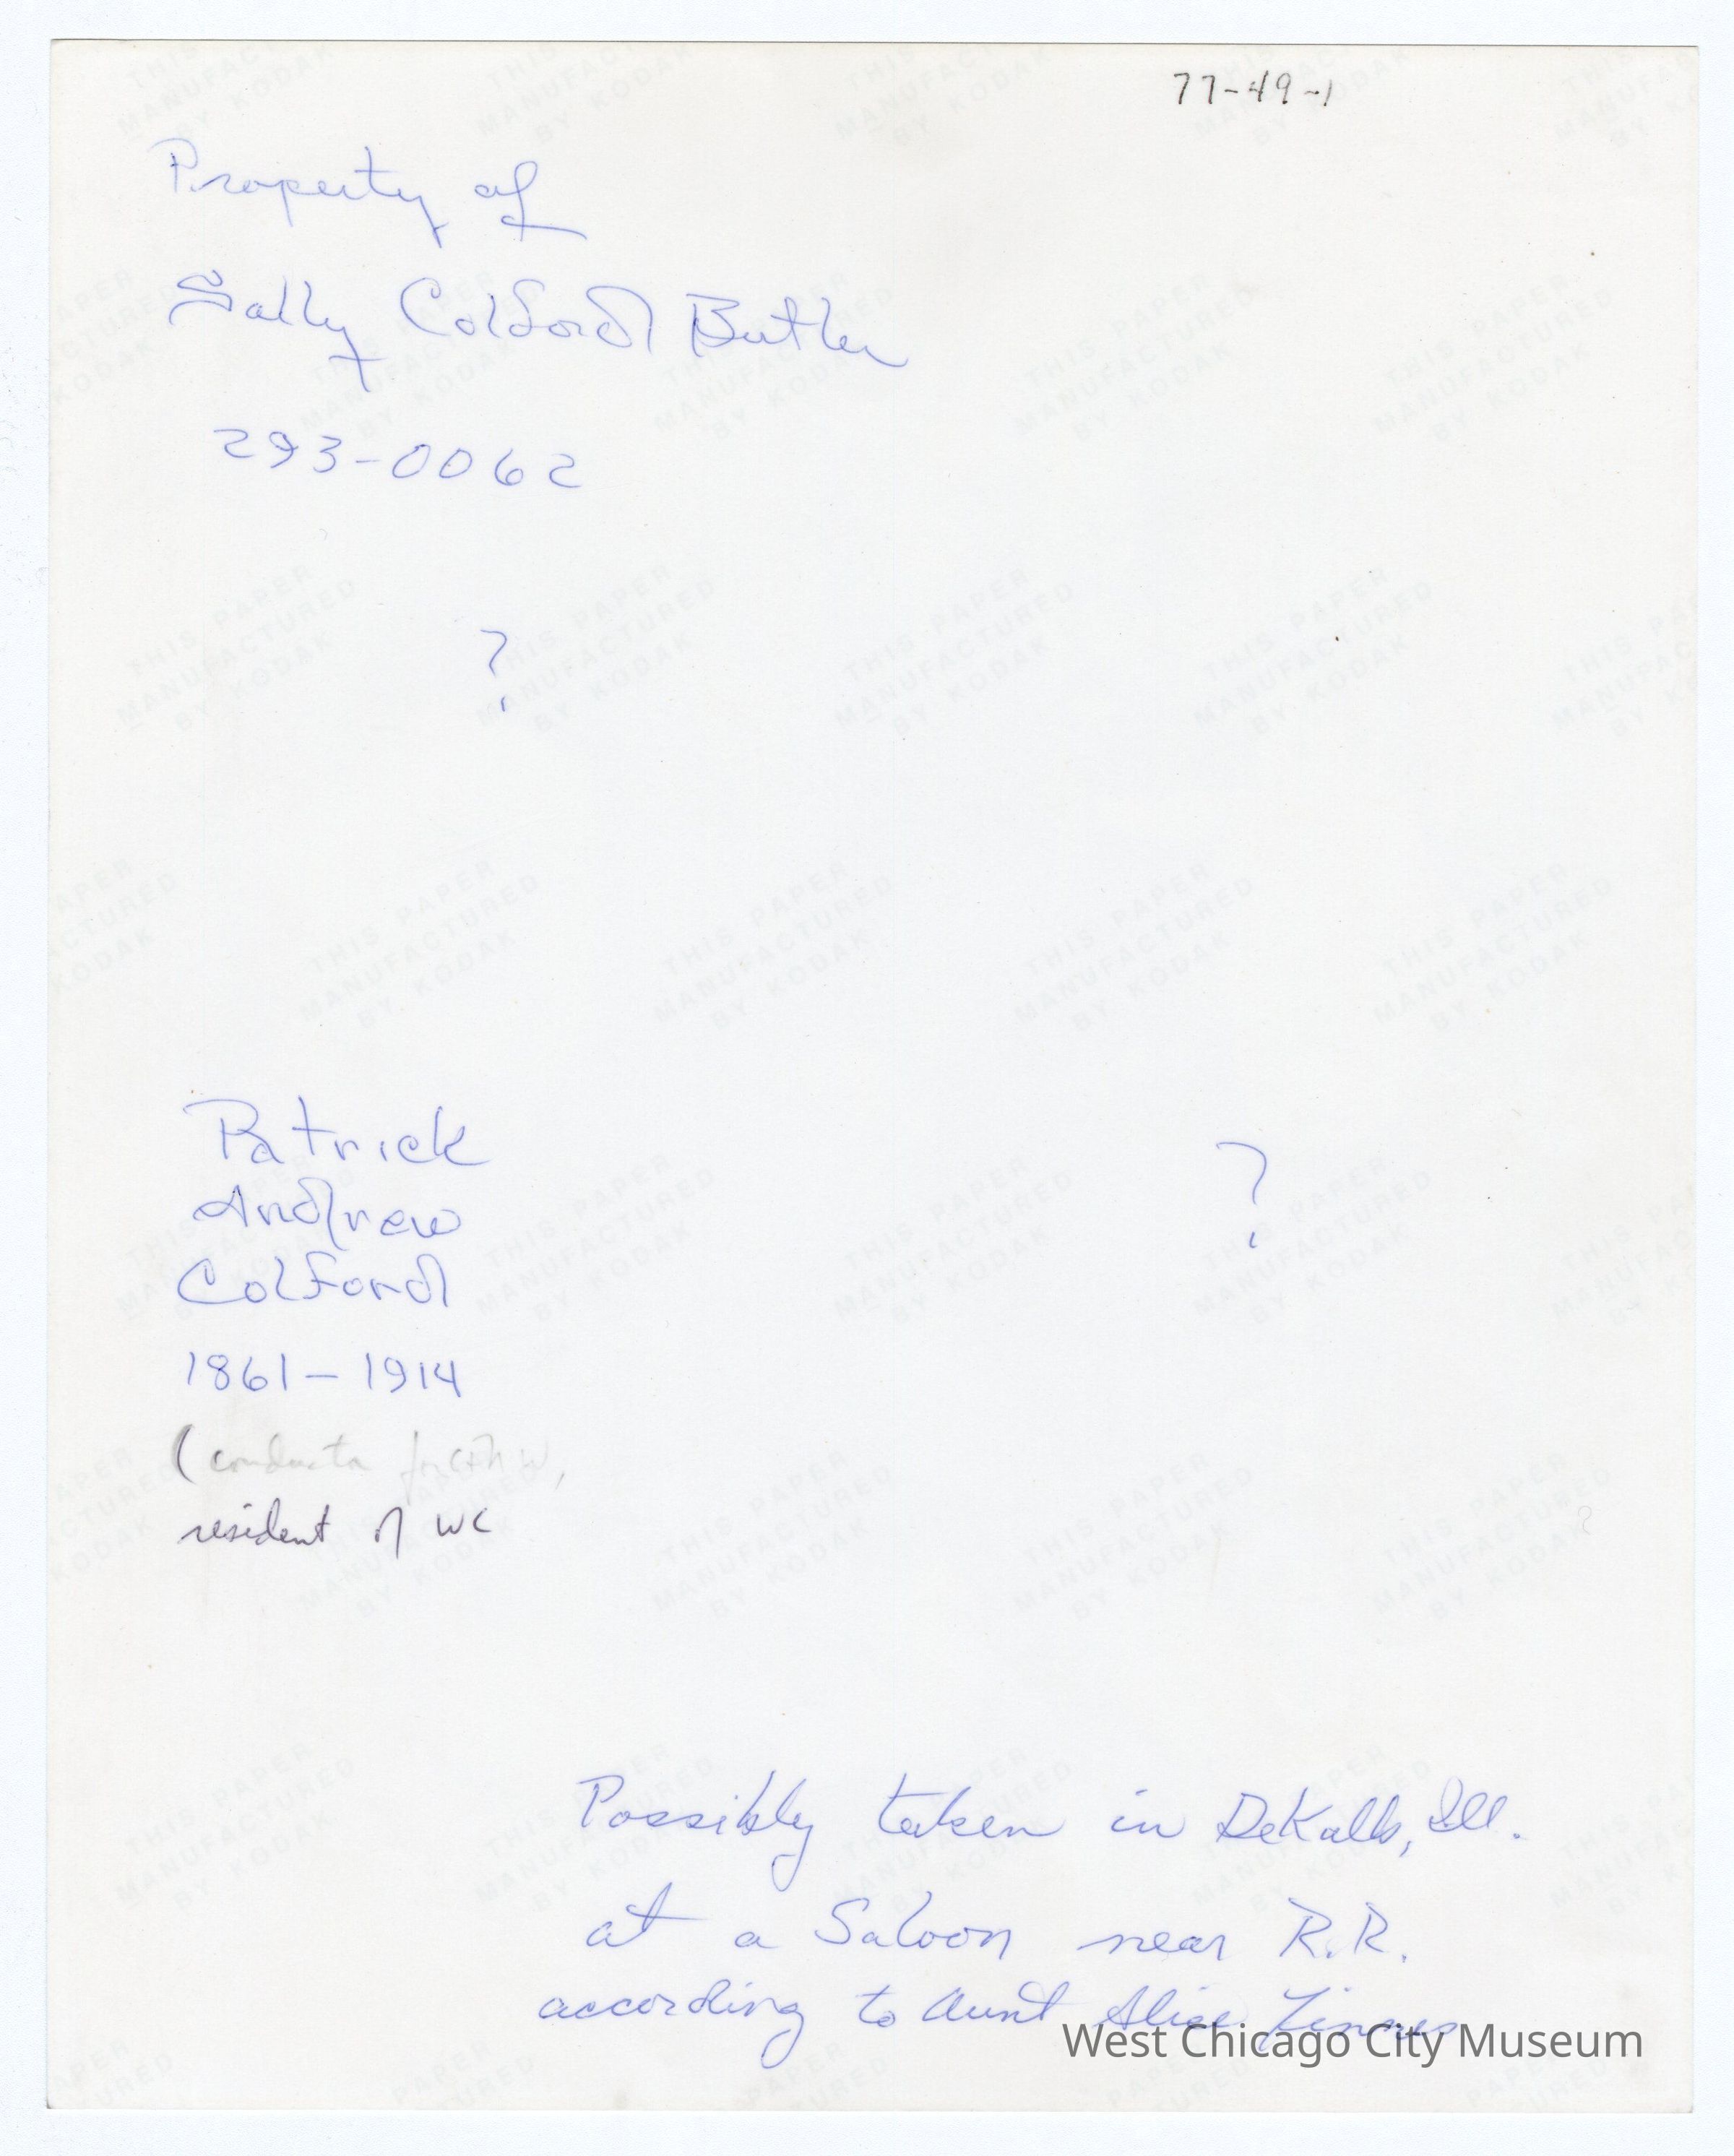 77-49-1
Property of
Sally Colford Butler
293-0062
?
Patrick
Andrew
Colford
1861-1914
?
(conductor for C&NW,
resident of WC
Possibly taken in DeKalb, Ill.
at a Saloon near R.R.
according to Aunt Alice
West Chicago City Museum
THIS PAPER
MANUFACTURED
BY KODAK